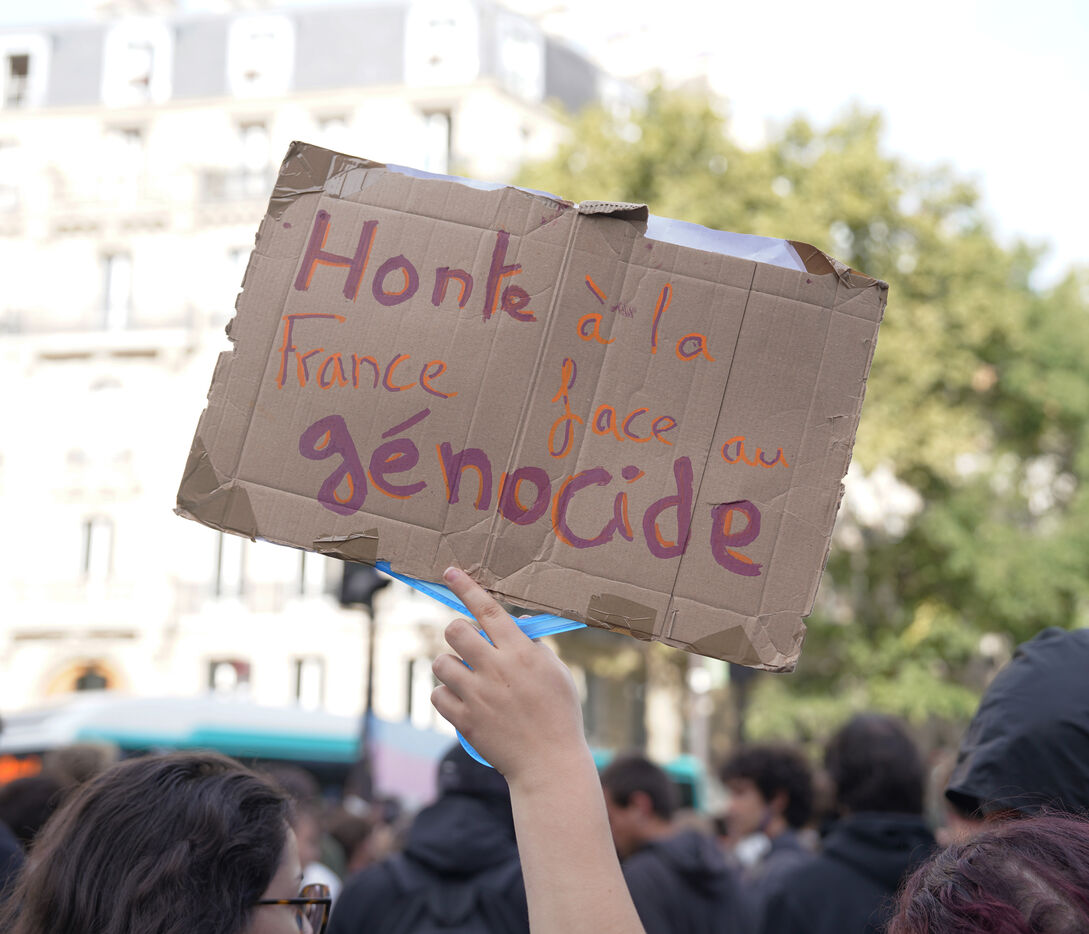 Honte à la
France face au
génocide